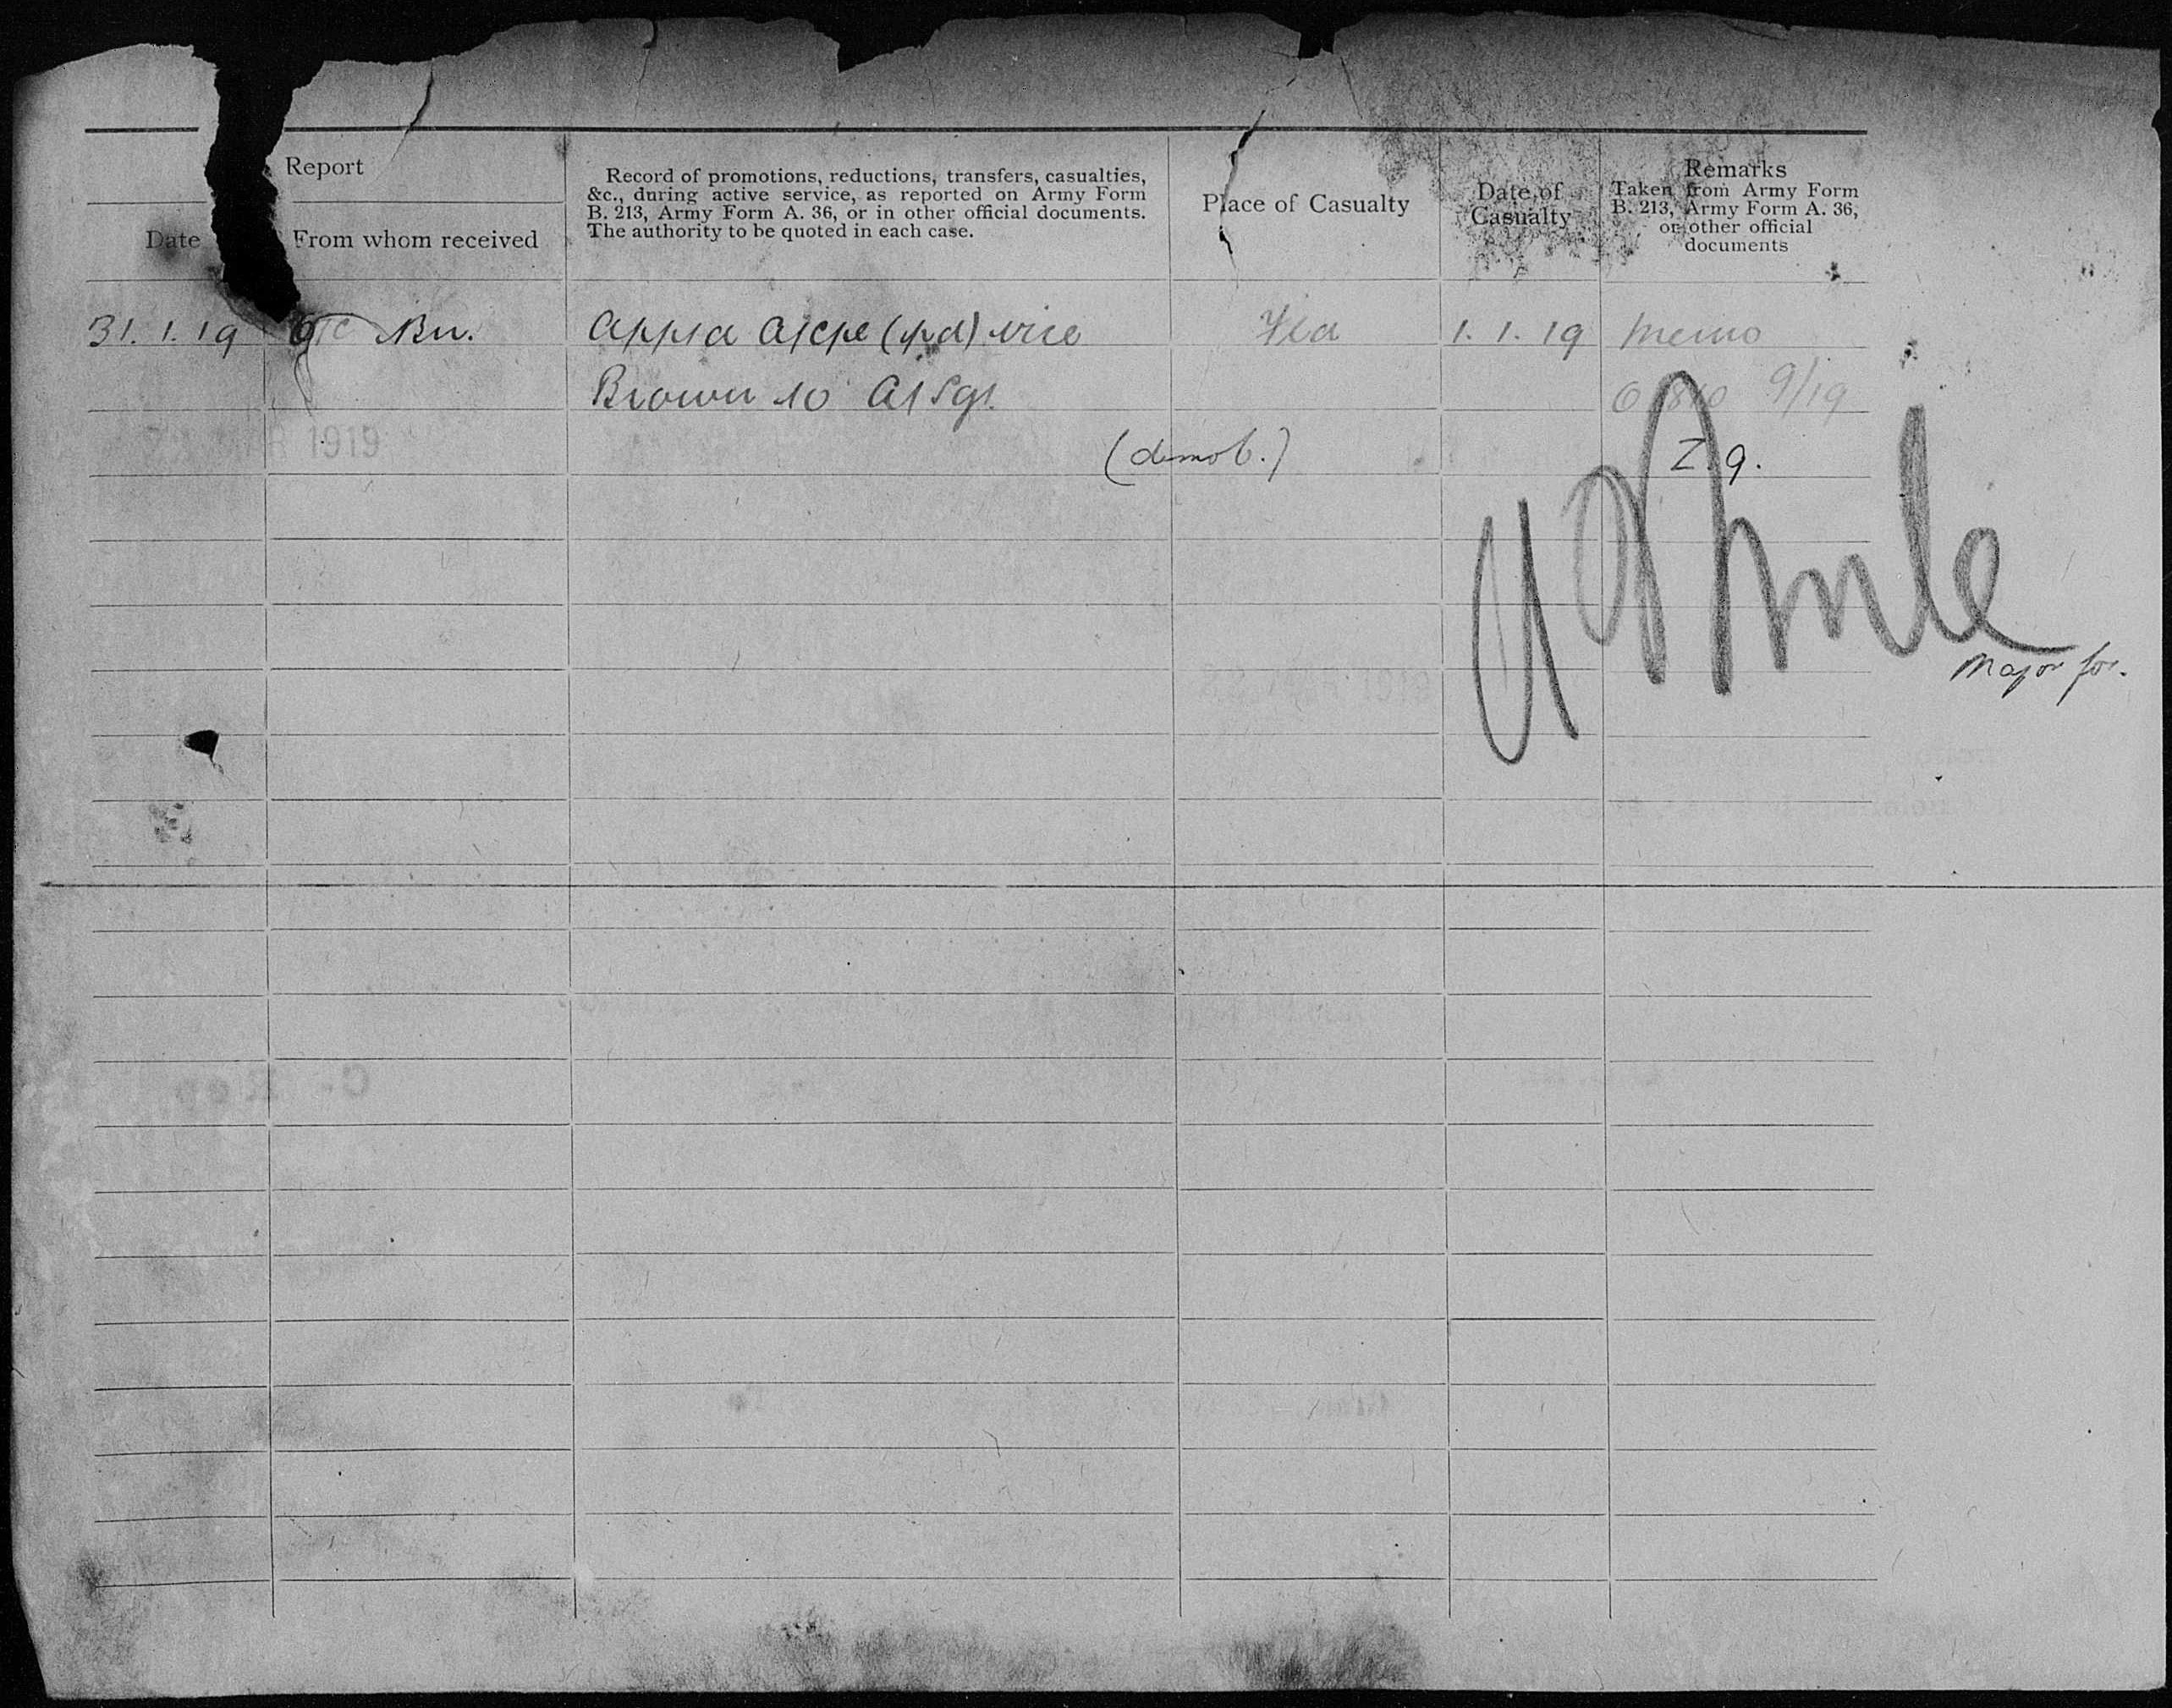 Report
Date
From whom received
Record of promotions, reductions, transfers, casualties,
&c., during active service, as reported on Army Form
B. 213, Army Form A. 36, or in other official documents.
The authority to be quoted in each case.
Place of Casualty
Date of
Casualty
Remarks
Taken from Army Form
B. 213, Army Form A. 36,
or other official
documents
31. 1. 19 O/C Bn. Appd A/Cpl (pd) vice Fld 1. 1. 19 Memo
Brown to A/Sgt. 9/19
1919 (demob.) Z. 9.
Major for.